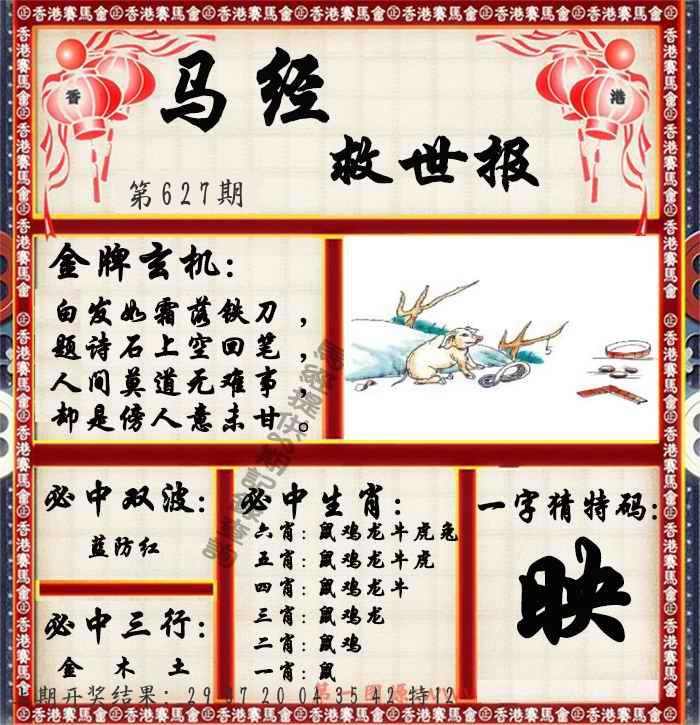 香港賽馬會 香港賽馬會 香港賽馬會 香港賽馬會 香港賽馬會 香港賽馬會
香
港
马经
救世报
第627期
金牌玄机:
白发如霜落铁刀，
题诗石上空回笔，
人间莫道死难事，
却是傍人意未甘。
必中双波:
蓝防红
必中三行:
金 木 土
必中生肖:
六肖: 鼠鸡龙牛虎兔
五肖: 鼠鸡龙牛虎
四肖: 鼠鸡龙牛
三肖: 鼠鸡龙
二肖: 鼠鸡
一肖: 鼠
一字猜特码:
映
期开奖结果: 29 37 20 04 35 42 特12